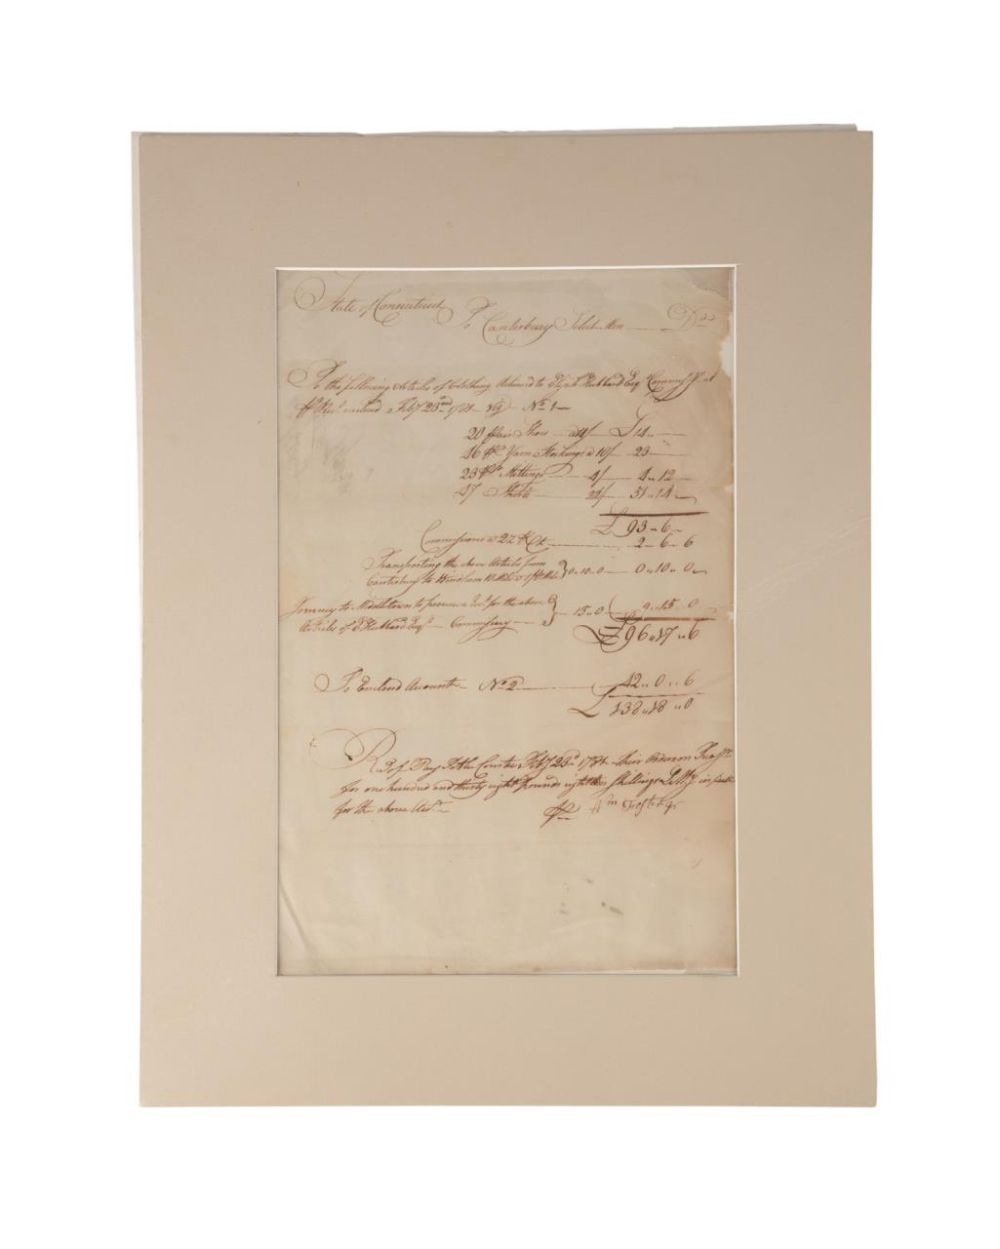 State of Connecticut
To Canterbury Select Men Dr
To the following Articles of Clothing delivered to Hubbard Esq Commissy at
Feby 23rd No 1
20 pair Shoes a 14/ £14
46 pr Yarn Stockings a 10/ 23
23 pr Mittings 4/ 4 " 12
47 Shirts 22/ 51 " 14
£ 93 " 6
Commissions a 2½ pr Ct 2 " 6 " 6
Transporting the above Articles from
Canterbury to Windham 0 " 10 " 0 0 " 10 " 0
Journey to Middletown to procure a for the above
Articles of Hubbard Esqr Commissary 15 " 0 0 " 15 " 0
£ 96 " 17 " 6
To Enclosd Amount No 2 42 " 0 " 6
£ 138 " 18 " 0
Recd of Pay Table Feby 23d Their order on
for one hundred and thirty eight pounds eighteen Shillings
for the above